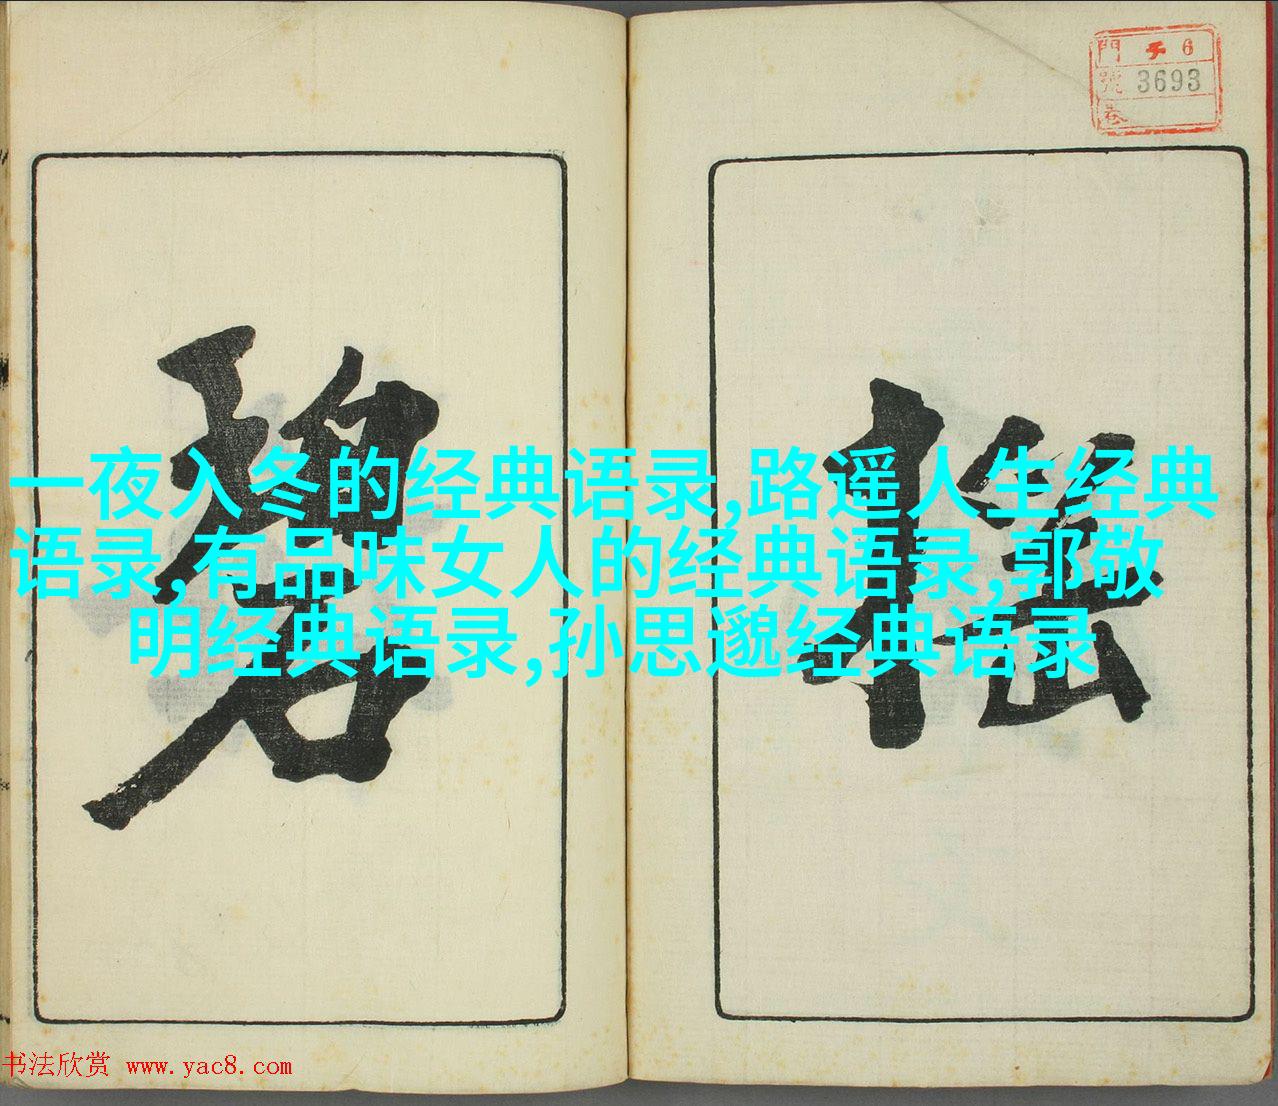 門 子 6
號 3693
卷
搖
碧
一夜入冬的经典语录,路遥人生经典
语录,有品味女人的经典语录,郭敬
明经典语录,孙思邈经典语录
书法欣赏 www.yac8.com